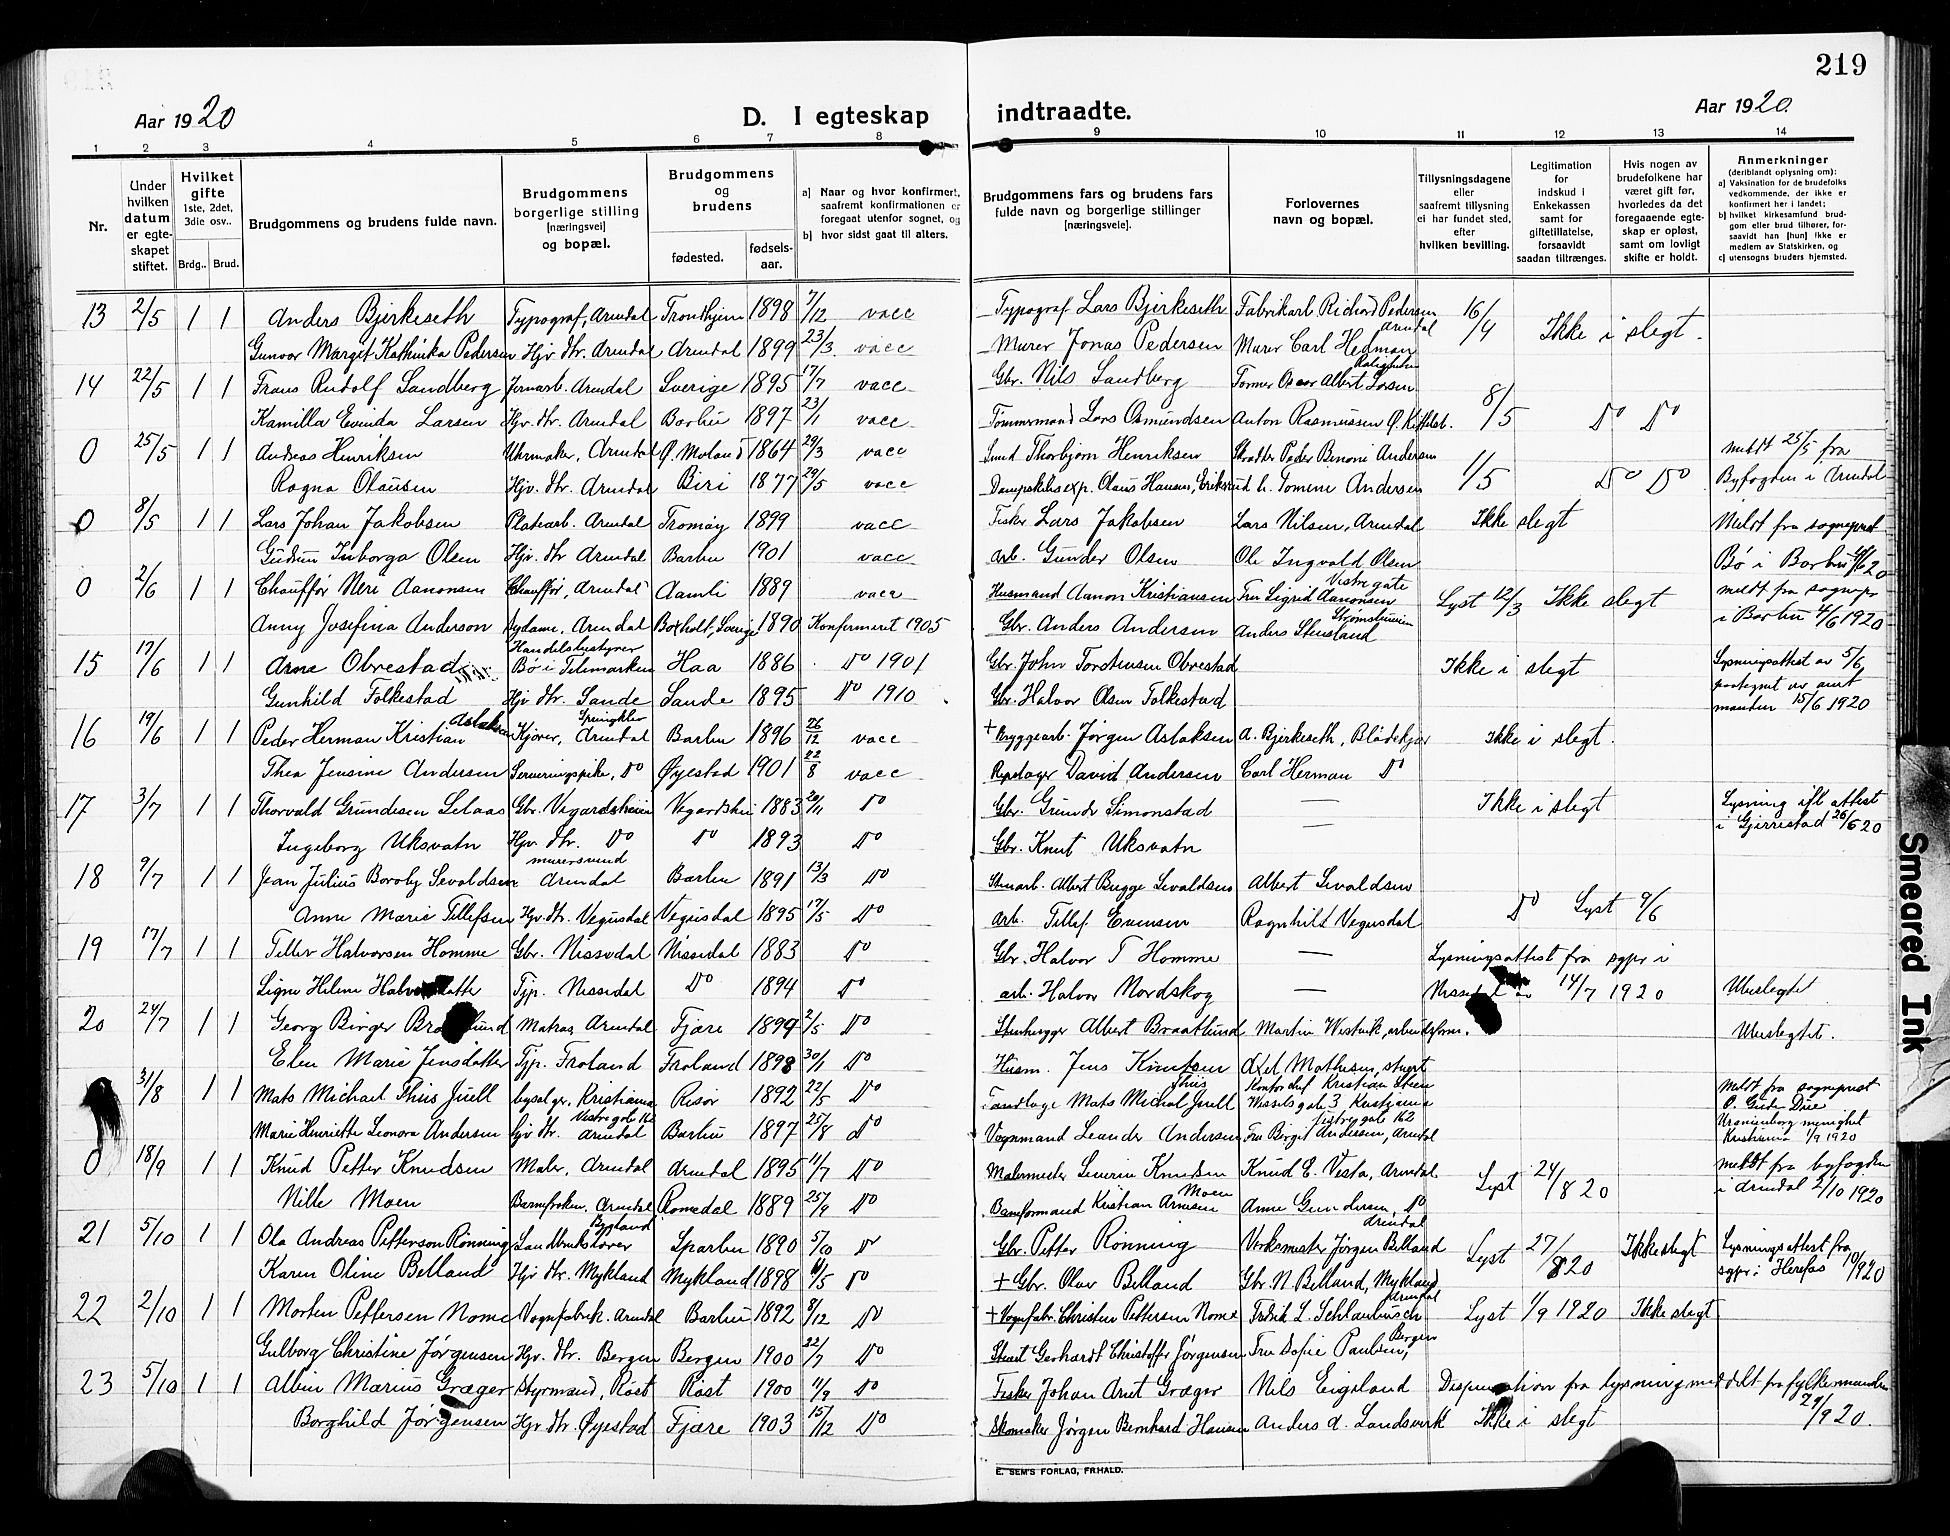 219
Aar 1920
D. I egteskap indtraadte.
Aar 1920.
1 2 3 4 5 6 7 8 9 10 11 12 13 14
Nr.
Under hvilken datum er egteskapet stiftet.
Hvilket gifte 1ste, 2det, 3die osv..
Brdg.. Brud.
Brudgommens og brudens fulde navn.
Brudgommens borgerlige stilling [næringsvei] og bopæl.
Brudgommens og brudens
fødested.
fødselsaar.
a) Naar og hvor konfirmert, saafremt konfirmationen er foregaat utenfor sognet, og
b) hvor sidst gaat til alters.
Brudgommens fars og brudens fars fulde navn og borgerlige stillinger [næringsveie].
Forlovernes navn og bopæl.
Tillysningsdagene eller saafremt tillysning ei har fundet sted, efter hvilken bevilling.
Legitimation for indskud i Enkekassen samt for giftetillatelse, forsaavidt saadan tiltrænges.
Hvis nogen av brudefolkene har været gift før, hvorledes da det foregaaende egteskap er opløst, samt om lovligt skifte er holdt.
Anmerkninger (deriblandt oplysning om):
a) Vaksination for de brudefolks vedkommende, der ikke er konfirmert her i landet;
b) hvilket kirkesamfund brudgom eller brud tilhører, forsaavidt han [hun] ikke er medlem av Statskirken, og
c) utensogns bruders hjemsted.
13 2/5 1 1 Anders Bjerkeseth Typograf, Arendal Trondhjem 1898 7/12 vacc Typograf Lars Bjerkeseth Fabrikarb Richard Pedersen Arendal 16/4 Ikke i slegt.
Gunvor Margit Kathinka Pedersen Hjv. dtr. Arendal Arendal 1899 23/3 vacc Murer Jonas Pedersen Murer Carl Hedman
14 22/5 1 1 Frans Rudolf Sandberg Jernarb. Arendal Sverige 1895 17/7 vacc Gbr. Nils Sandberg Former Oscar Albert Larsen 8/5 Do Do
Kamilla Evinda Larsen Hjv. dtr. Arendal Barbu 1897 23/1 vacc Tømmermand Lars Osmundsen Anton Rasmussen
0 25/5 1 1 Andreas Henriksen Uhrmaker, Arendal Ø. Moland 1864 29/3 vacc Smed Thorbjørn Henriksen Skrædder Peder Benoni Andersen 1/5 Do Do Meldt 25/5 fra
Ragna Olausen Hjv. dtr. Arendal Biri 1877 29/5 vacc Dampskibsexp. Olaus Hansen, Tomine Andersen Byfogden i Arendal
0 8/5 1 1 Lars Johan Jakobsen Platearb. Arendal Tromøy 1899 vacc Fisker Lars Jakobsen Lars Nilsen, Arendal Ikke slegt Meldt fra sogneprest
Gudrun Inborga Olsen Hjv. dtr Arendal Barbu 1901 vacc arb. Gunder Olsen Ole Ingvald Olsen Bø i Barbu 20
0 2/6 1 1 Chauffør Neri Aanonsen Chauffør, Arendal Aamli 1889 vacc Husmand Aanon Kristiansen Fru Sigrid Aanonsen Vestregate Lyst 12/3 Ikke slegt meldt fra sognepr
Anny Josefina Anderson Sydame, Arendal Boxholt, Sverige 1890 Konfirmeret 1905 Gbr. Anders Andersen Anders Stensland Strømsbuveien i Barbu 4/6 1920
15 17/6 1 1 Arne Obrestad Handelsbestyrer Bø i Telemarken Haa 1886 Do 1901 Gbr. John Torstensen Obrestad Ikke i slegt Lysningsattest av 5/6
Gunhild Folkestad Hjv dtr. Sande Sande 1895 Do 1910 Gbr. Halvor Olsen Folkestad 15/6 1920
16 19/6 1 1 Peder Herman Kristian Aslaksen Kjører, Arendal Barbu 1896 26/12 vacc + Bryggearb. Jørgen Aslaksen A. Bjerkeseth, Blødekjær Ikke i slegt.
Thea Jensine Andersen Serveringspike, Do Øyestad 1901 22/8 vacc Repslager David Andersen Carl Herman Do
17 3/7 1 1 Thorvald Grundesen Selaas Gbr. Vegardsheien Vegardshei 1883 20/11 Do Gbr. Grunde Simonstad — Ikke i slegt Lysning ifl attest
Ingeborg Uksvatn Hjv. dtr. Do Do 1893 Do Gbr. Knut Uksvatn — i Gjerrestad 26/6 20
18 9/7 1 1 Jean Julius Boroby Sevaldsen murersvend Arendal Barbu 1891 13/3 Do Stenarb. Albert Bugge Sevaldsen Albert Sevaldsen
Anne Marie Tellefsen Hjv. dtr. Vegusdal Vegusdal 1895 17/5 Do arb. Tellef Evensen Ragnhild Vegusdal Do Lyst 9/6
19 17/7 1 1 Tellev Halvorsen Homme Gbr. Nissedal Nissedal 1883 Do Gbr. Halvor T Homme — Lysningsattest fra sgpr i
Signe Helene Tjp. Nissedal Do 1894 Do arb. Halvor Nordskog — Nissedal av 14/7 1920 Ubeslegtet
20 24/7 1 1 Georg Birger Matros Arendal Fjære 1899 2/5 Do Stenhugger Albert Braatlund Martin Westvik, arbeidsform. Ubeslegtet.
Elen Marie Jensdatter Tjp. Froland Froland 1898 30/1 Do Husm. Jens Knutsen Axel Mathesen, stuert
31/8 1 1 Mats Michael Thiis Juell Kristiania Risør 1892 22/5 Do Tandlæge Mats Michal Thiis Juell Kontorchef Kristian Steen Wesselsgate 3 Kristiania Meldt fra sogneprest
Marie Henriette Leonora Andersen Hjv. dtr. Vestregate 162 Arendal Barbu 1897 25/8 do Vognmand Leander Andersen Fru Birgit Andersen, Arendal Uranienborg menighet Kristiania 1/9 1920
0 18/9 1 1 Knud Petter Knudsen Maler, Arendal Arendal 1895 11/7 Do Malermester Severin Knudsen Knud E. Vesta, Arendal Lyst 24/8 20 meldt fra byfogden
Nille Moen Barnefrøken, Arendal Romedal 1889 25/9 Do Baneformand Kristian Arnesen Moen Anne Gundersen, Do i Arendal 2/10 1920
21 5/10 1 1 Ola Andreas Petterson Rønning Landbrukslærer Bygland Sparbu 1890 5/10 Do Gbr. Petter Rønning Verksmester Jørgen Belland Arendal Lyst 27/8 20 Ikke slegt Lysningsattest fra
Karen Oline Belland Hjv dtr. Mykland Mykland 1898 /5 Do + Gbr. Olav Belland Gbr. N. Belland, Mykland sgpr. i Herefos 10/9 20
22 2/10 1 1 Morten Pettersen Nome Vognfabrik. Arendal Barbu 1892 8/12 Do + Vognfabr. Christen Pettersen Nome Fredrik L Schlanbusch Arendal Lyst 1/9 1920 Ikke slegt
Gulborg Christine Jørgensen Hjv. dtr. Bergen Bergen 1900 22/7 Do Stuert Gerhardt Christoffer Jørgensen Fru Sofie Paulsen, Bergen
23 5/10 1 1 Albin Marius Græger Styrmand, Røst Røst 1900 11/9 Do Fisker Johan Arnt Græger Nils Eigeland Dispensation fra lysning meddelt fra fylkesmanden
Borghild Jørgensen Hjv dtr. Øyestad Fjære 1903 15/12 Do Skomaker Jørgen Bernhard Hansen Anders A. Landsverk Ikke i slegt 29/9 20.
E. SEM'S FORLAG, FR.HALD.
Smeared Ink